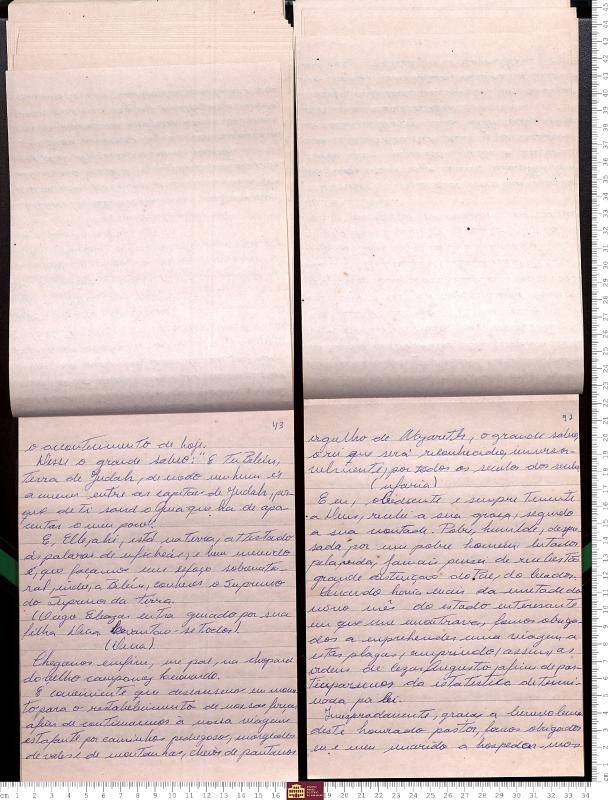 43
o acontecimento de hoje.
Disse o grande sabio: "E tu Belém,
terra de Judah, de modo nenhum és
a menor entre as capitaes de Judah, por-
que de ti sairá o Guia que ha de apa-
centar o meu povo".
E,
as palavras de
é, que façamos um esforço sobrenatu-
ral, indo a Belém, conhecer o Supremo
do Supremo da terra.
(O cego Eleazar entra guiado por sua
filha Dina. Levantão-se todos)
(Dina)
Chegamos emfim, meu pai, na choupana
do velho camponez
É conveniente que descansemos um momen-
to para o restabelecimento de nossas forças
afim de continuarmos a nossa viagem
estafante por caminhos pedregosos,
de vales e de montanhas, cheios de pantanos
92
orgulho de Nazareth, o grande sabio,
o rei que será reconhecido, universa-
velmente, por todos os seculos dos seculos
(Maria)
E eu, obediente e sempre temente
a Deus, recebi a sua graça, segundo
a sua vontade. Pobre, humilde, despo-
sada por um pobre homem
jamais pensei de receber esta
grande distinção do Pai, do Creador.
Quando havia mais da metade do
nono mês do estado interessante
em que me encontrava, fomos obriga-
dos a emprehender uma viagem a
estas plagas, cumprindo, assim, as
ordens de Cezar Augusto, afim de par-
ticiparmos da estatistica determi-
nada por lei.
Inesperadamente, graças a benevolencia
deste honrado pastor, fomos obrigados
eu e meu marido a hospedar-nos